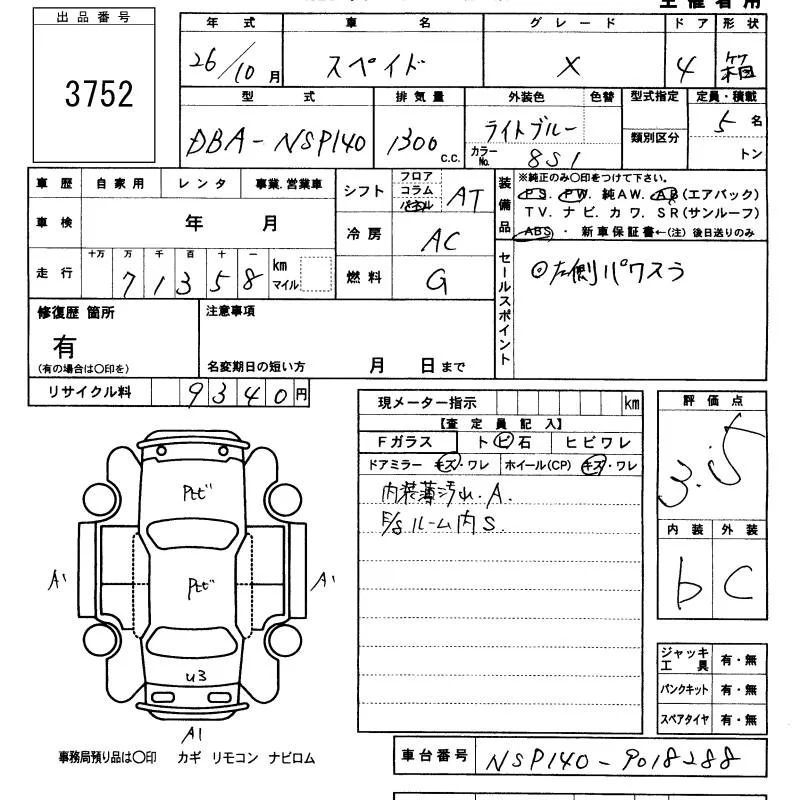 主催者用
出品番号
3752
年式 車名 グレード ドア 形状
26/10月 スペイド X 4 箱
型式 排気量 外装色 色替 型式指定 定員・積載
DBA-NSP140 1300 c.c. ライトブルー 類別区分 5名
カラーNo. 8S1 トン
車歴 自家用 レンタ 事業.営業車
シフト フロア コラム パネル AT
装備品 ※純正のみ○印をつけて下さい。
PS. PW. 純AW. AB(エアバック)
TV. ナビ. カワ. SR(サンルーフ)
ABS・ 新車保証書←(注) 後日送りのみ
車検 年 月
冷房 AC
走行 十万 万 千 百 十 一
71358 km マイル
燃料 G
セールスポイント
◎左側パワスラ
修復歴 箇所
有
(有の場合は○印を)
注意事項
名変期日の短い方 月 日まで
リサイクル料 9340円
現メーター指示 km
【査定員記入】
Fガラス トビ石 ヒビワレ
ドアミラー キズ・ワレ ホイール(CP) キズ・ワレ
内装薄汚れ.A.
F/Sルーム内S.
評価点
3.5
内装 外装
b C
Ptビ
A1 Ptビ A1
U3
A1
ジャッキ工具 有・無
パンクキット 有・無
スペアタイヤ 有・無
事務局預り品は○印 カギ リモコン ナビロム
車台番号 NSP140-9018288